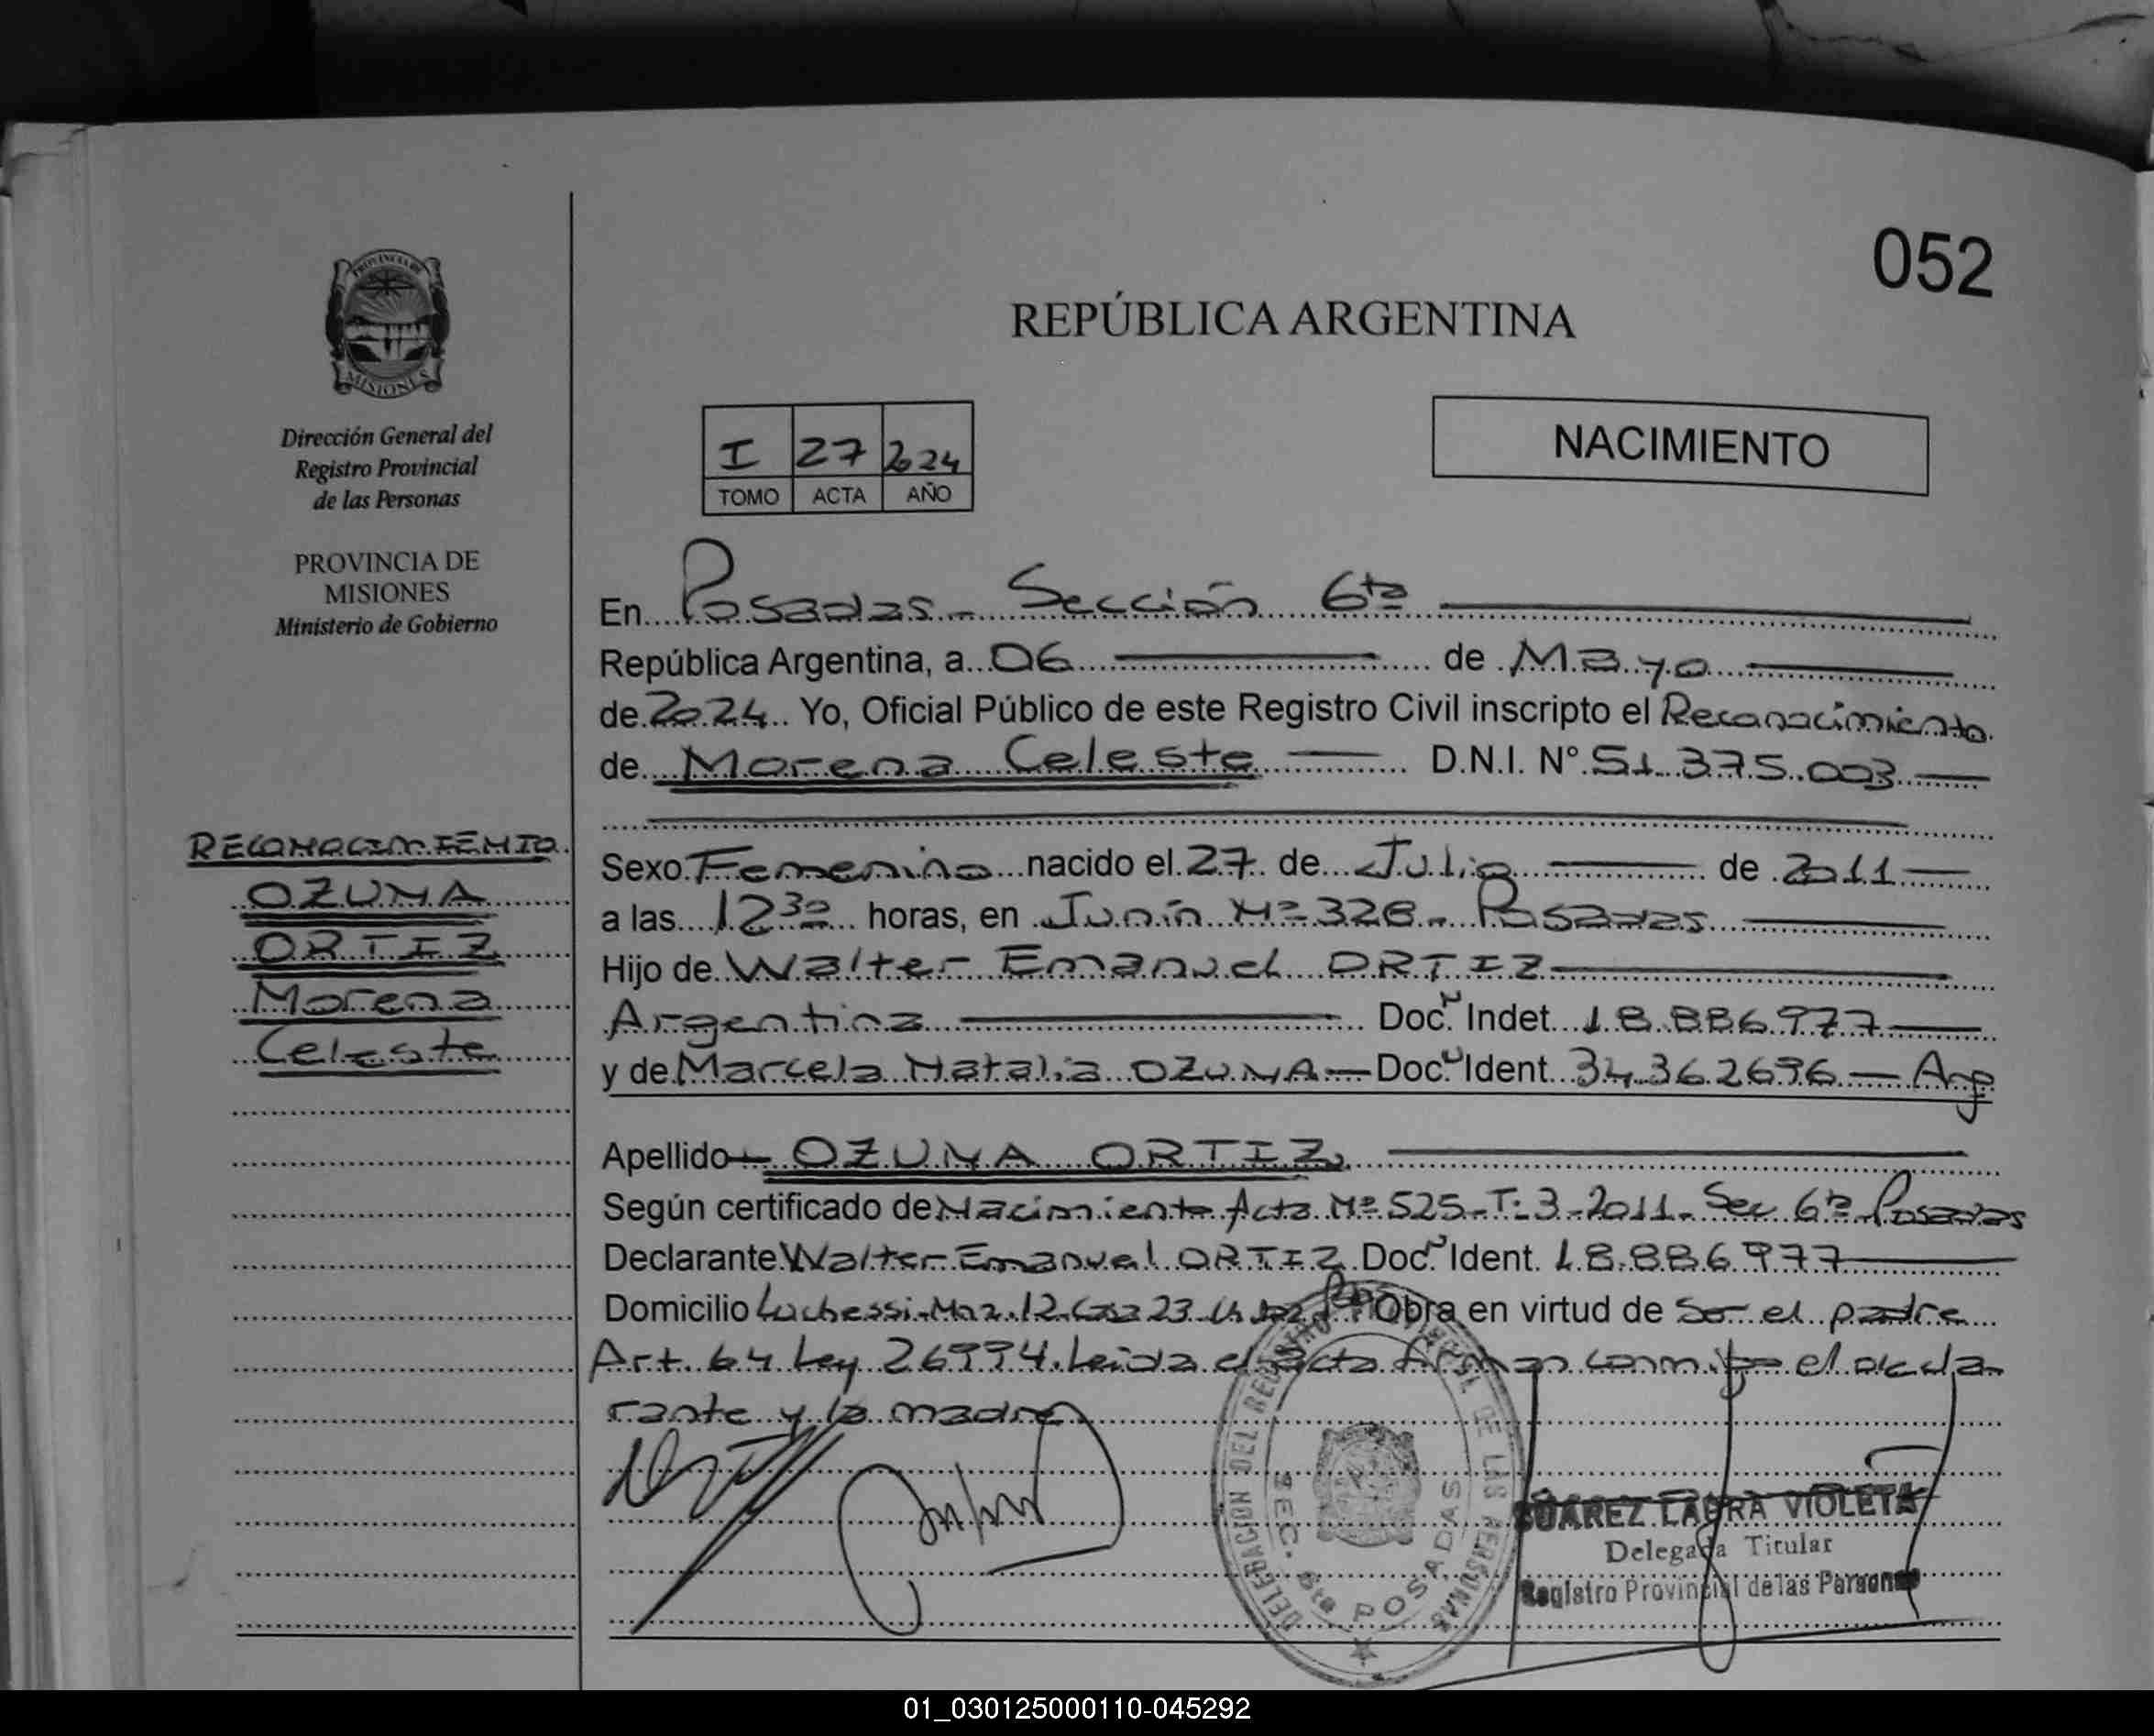 052
REPÚBLICA ARGENTINA
PROVINCIA DE
MISIONES
Dirección General del
Registro Provincial
de las Personas
PROVINCIA DE
MISIONES
Ministerio de Gobierno
I 27 2024
TOMO ACTA AÑO
NACIMIENTO
En Posadas - Sección 6ta
República Argentina, a 06 de Mayo
de 2024 Yo, Oficial Público de este Registro Civil inscripto el Reconocimiento
de Morena Celeste D.N.I. N° 51.375.003
RECONOCIMIENTO
OZUNA
ORTIZ
Morena
Celeste
Sexo Femenino nacido el 27 de Julio de 2011
a las 12 30 horas, en Junín Nº 326 - Posadas
Hijo de Walter Emanuel ORTIZ
Argentina Doc. N Indet. 18.886.977
y de Marcela Natalia OZUNA Doc. U Ident. 34.362696 - Arg
Apellido OZUNA ORTIZ
Según certificado de Nacimiento Acta Nº 525 - T: 3 - 2011 - Sec 6ta Posadas
Declarante Walter Emanuel ORTIZ Doc. N Ident. 18.886.977
Domicilio Luchessi - Mza. 12 Casa 23 Obra en virtud de Ser el padre
Art. 64 Ley 26994. Leida el acta firman conmigo el decla
rante y la madre
DELEGACION DEL REGISTRO DE LAS PERSONAS
SEC. 6ta POSADAS
SUAREZ LAURA VIOLETA
Delegada Titular
Registro Provincial de las Personas
01_030125000110-045292